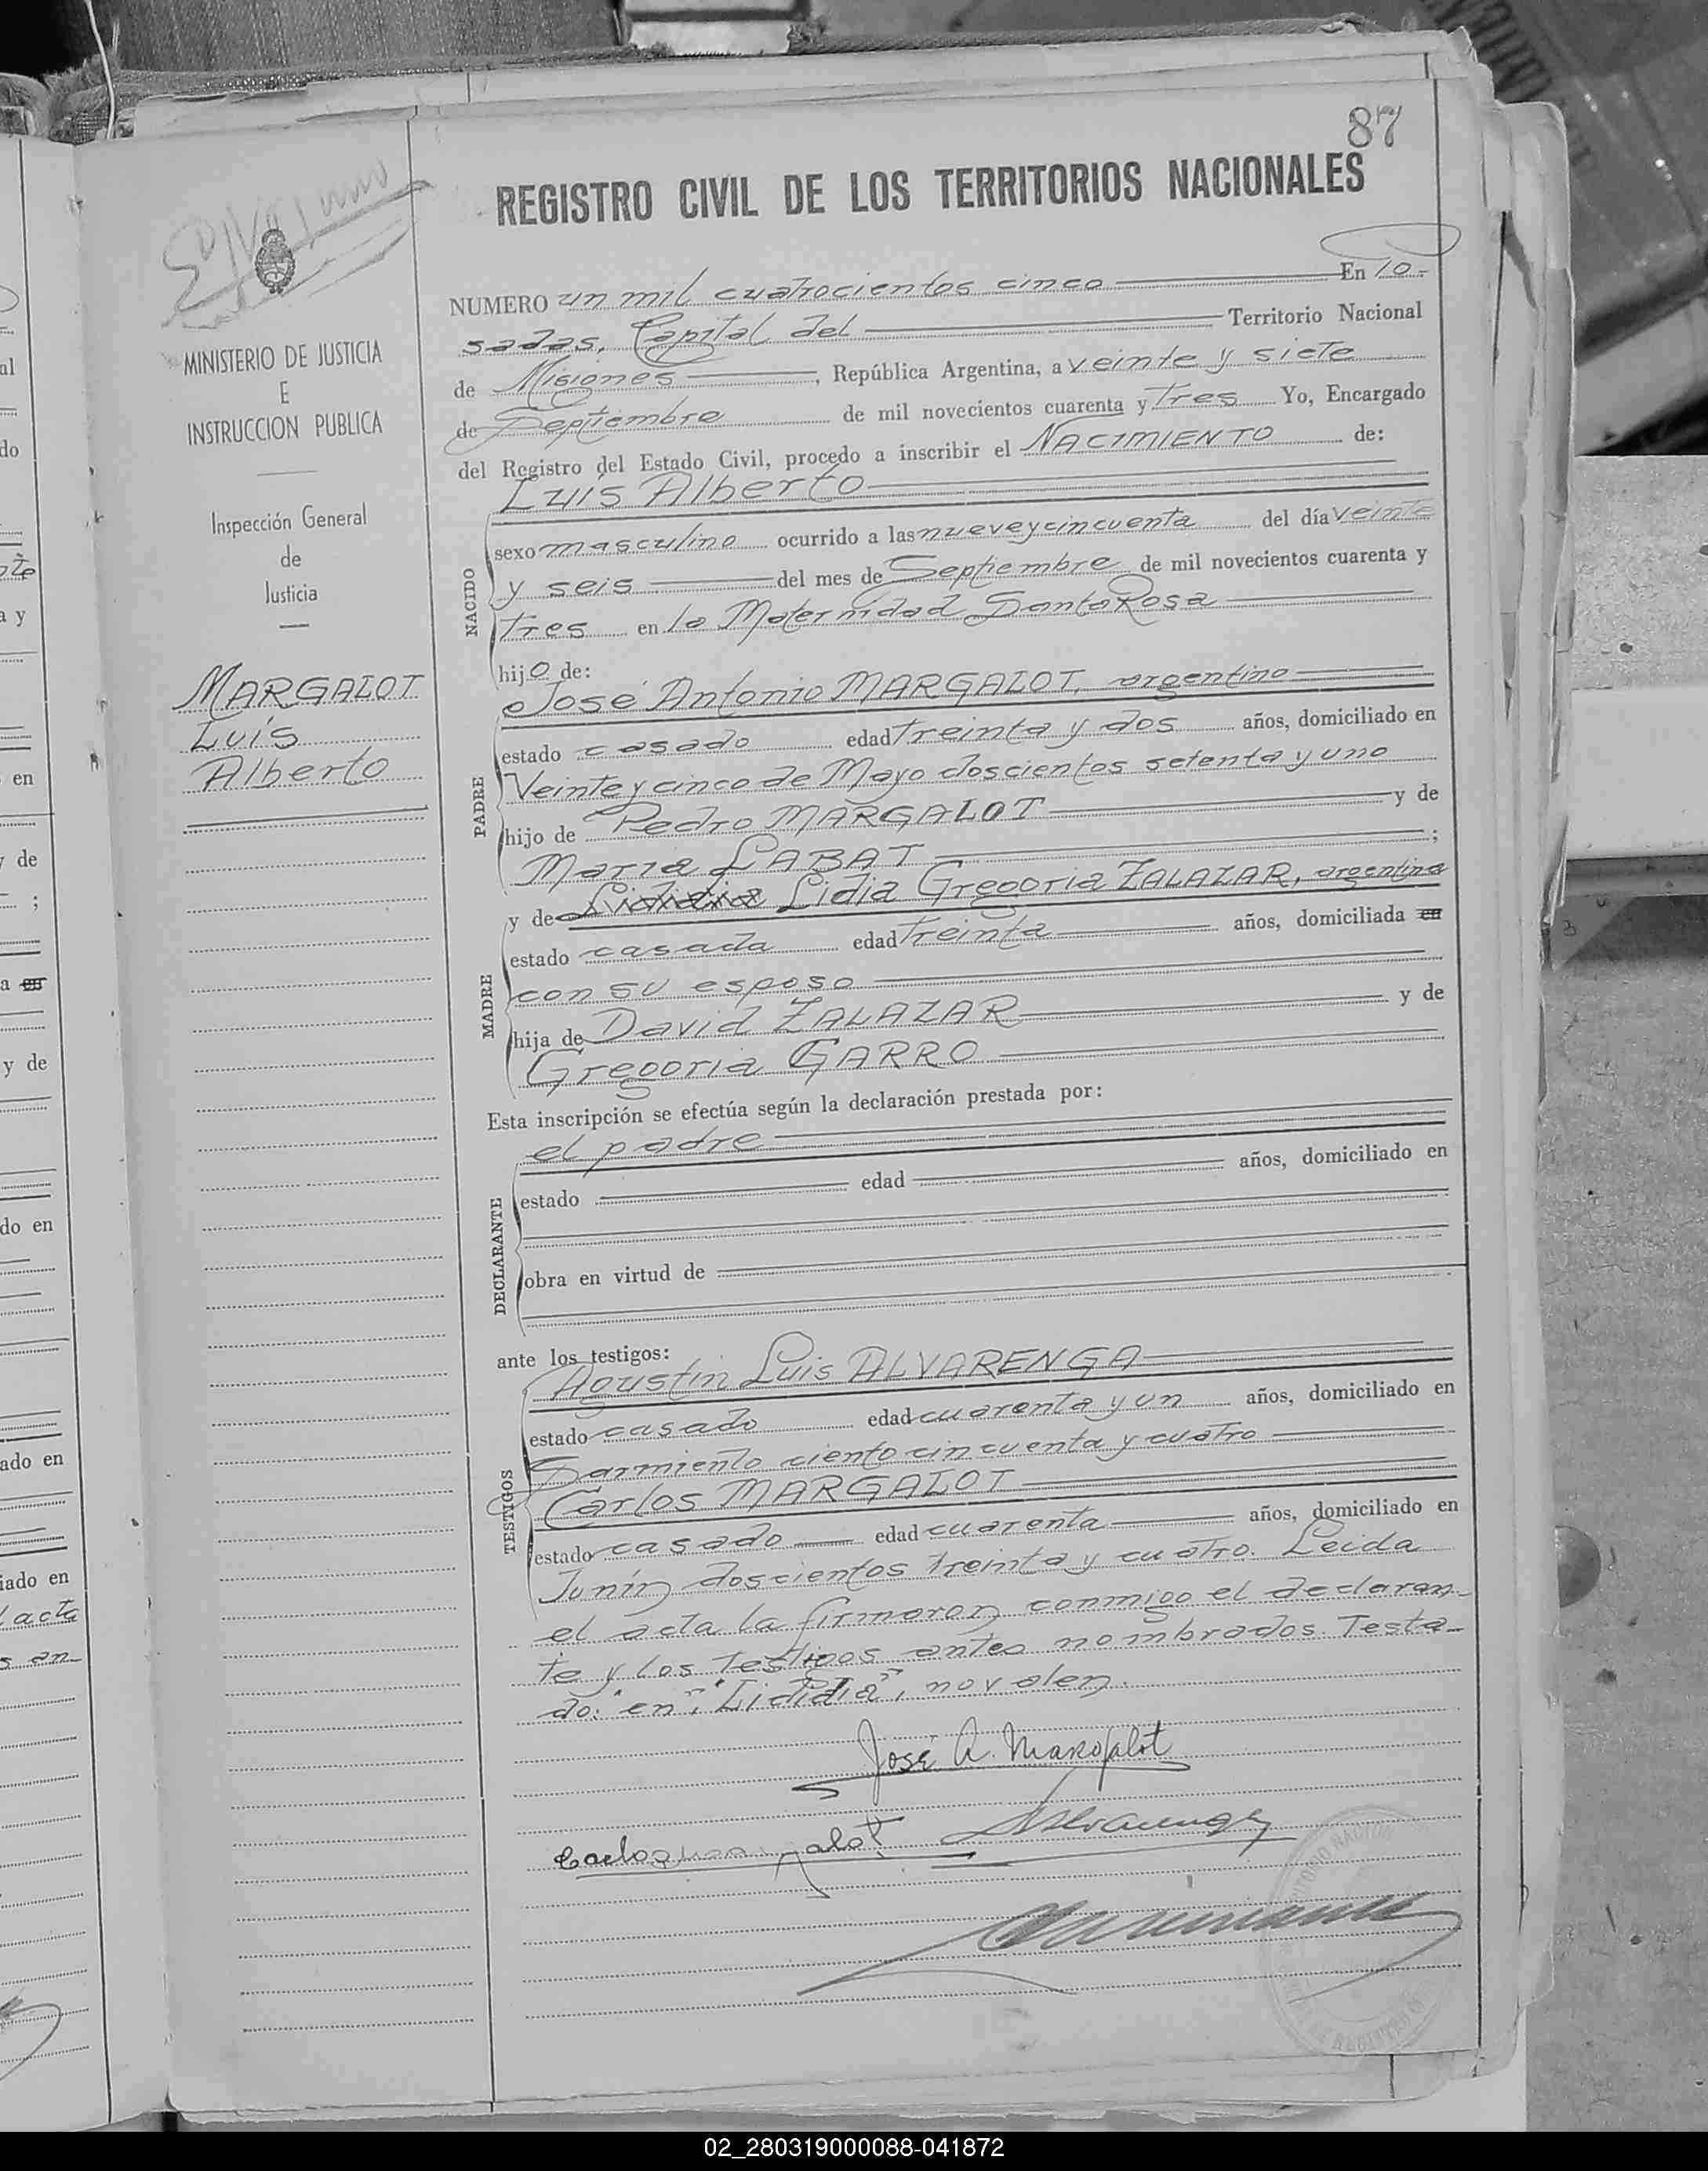 87
REGISTRO CIVIL DE LOS TERRITORIOS NACIONALES
MINISTERIO DE JUSTICIA
E
INSTRUCCION PUBLICA
Inspección General
de
Justicia
MARGALOT
Luis
Alberto
NUMERO un mil cuatrocientos cinco En Po-
sadas, Capital del Territorio Nacional
de Misiones, República Argentina, a veinte y siete
de Septiembre de mil novecientos cuarenta y tres Yo, Encargado
del Registro del Estado Civil, procedo a inscribir el NACIMIENTO de:
Luis Alberto
NACIDO
sexo masculino ocurrido a las nueve y cincuenta del día veinte
y seis del mes de Septiembre de mil novecientos cuarenta y
tres en la Maternidad Santa Rosa
hijo de:
José Antonio MARGALOT, argentino
PADRE
estado casado edad treinta y dos años, domiciliado en
Veinte y cinco de Mayo doscientos setenta y uno
hijo de Pedro MARGALOT y de
Maria LABAT ;
y de Lididia Lidia Gregoria ZALAZAR, argentina
MADRE
estado casada edad treinta años, domiciliada en
con su esposo
hija de David ZALAZAR y de
Gregoria GARRO
Esta inscripción se efectúa según la declaración prestada por:
el padre
DECLARANTE
estado edad años, domiciliado en
obra en virtud de
ante los testigos:
Agustin Luis ALVARENGA
TESTIGOS
estado casado edad cuarenta y un años, domiciliado en
Sarmiento ciento cincuenta y cuatro
Carlos MARGALOT
estado casado edad cuarenta años, domiciliado en
Junín doscientos treinta y cuatro. Leida
el acta la firmaron conmigo el declaran-
te y los testigos antes nombrados. Testa-
do: "en", "Lididia", no valen.
José A. Margalot
Carlos Margalot
Alvarenga
02_280319000088-041872